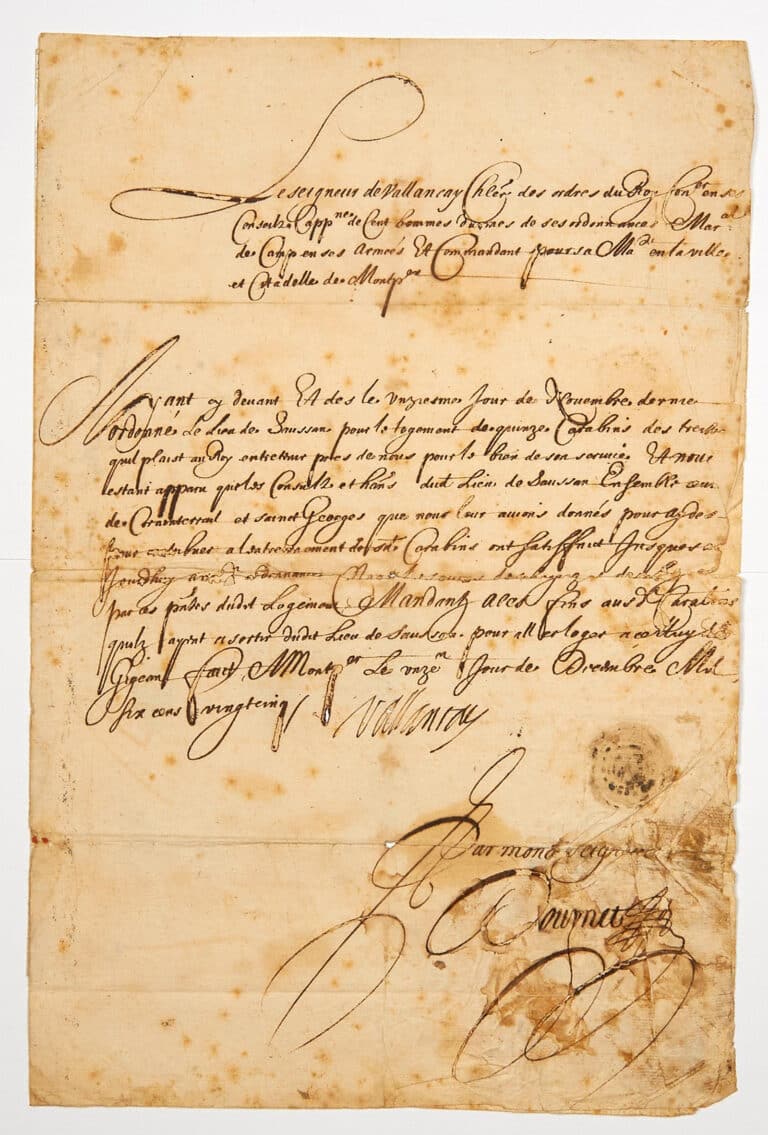 Le seigneur de Vallancay Chler des ordres du Roy Coner en ses
Conseilz Cappne de Cent hommes darmes de ses ordonnances Maral
de Camp en ses Armées Et Commandant pour sa Made en la ville
et Citadelle de Montper
Ayant cy devant Et des le unziesme Jour de Novembre dernie
ordonné Le Lieu de Saussan pour le logement de quinze Carabins des
quil plaist au Roy entretenir pres de nous pour le bien de son service Et nous
estant apparu que les Consulz et hans dudt Lieu de Saussan Ensemble ceux
de Cornonterrail et sainct Georges que nous leur avions donnés pour ayde
pour contribuer a lentretenement desdts Carabins ont satisffaict Jusques
Jourdhuy
par ces pntes dudit Logement Mandantz a ces fins ausdts Carabins
quilz ayent a sortir dudit Lieu de Saussan pour aller loger a celluy de
Gigean faict A Montper Le unzem Jour de Decembre Mil
six cens vingtcinq
Vallancay
Par mond seigneur
Bournet